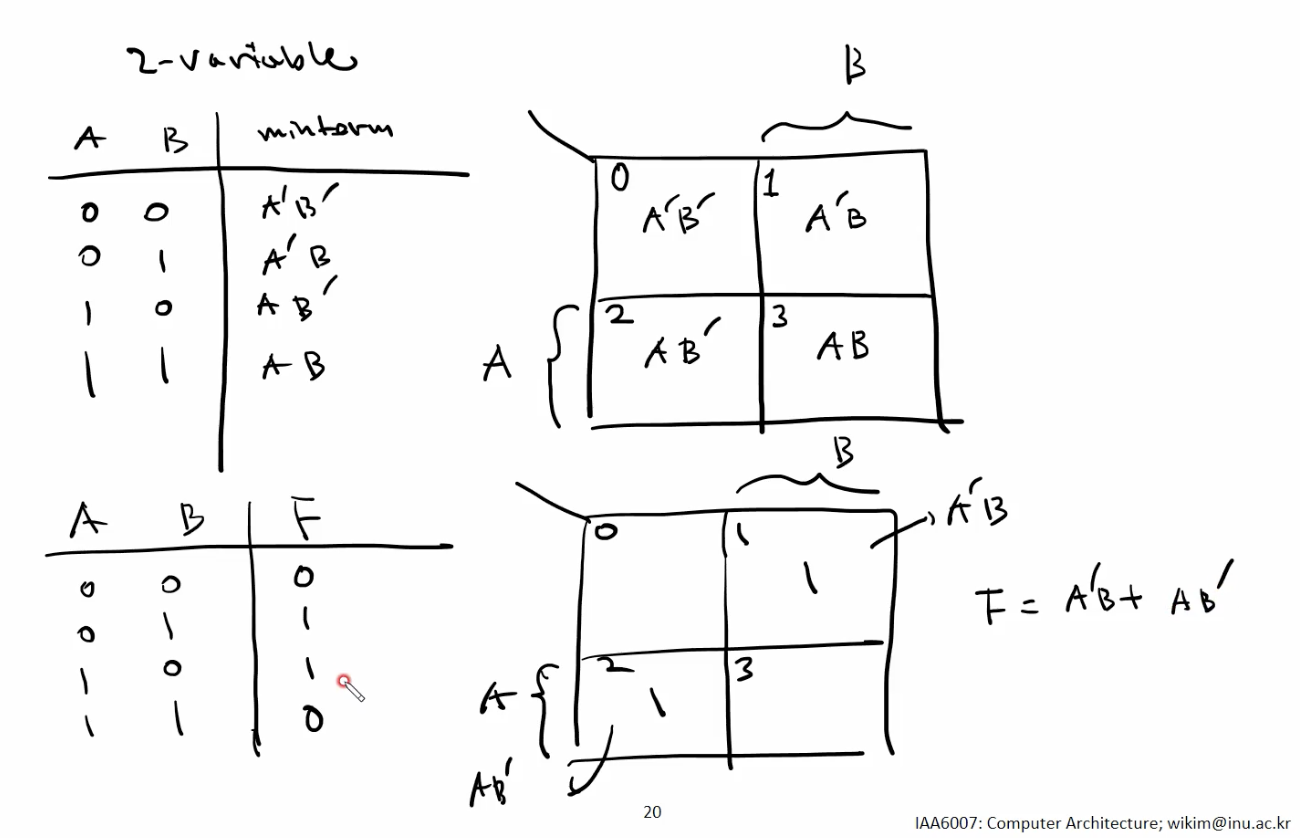 2-variable
A B minterm
0 0 A'B'
0 1 A'B
1 0 AB'
1 1 AB
B
0 A'B' 1 A'B
A
2 AB' 3 AB
A B F
0 0 0
0 1 1
1 0 1
1 1 0
B
0 1 1 A'B
A
2 1 3
AB'
F = A'B + AB'
20
IAA6007: Computer Architecture; wikim@inu.ac.kr